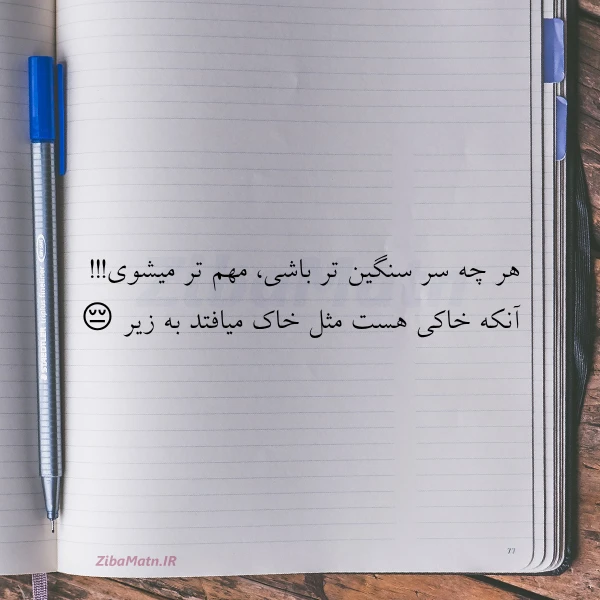 هر چه سر سنگین تر باشی، مهم تر میشوی!!!
آنکه خاکی هست مثل خاک میافتد به زیر 😔
ZibaMatn.IR
77